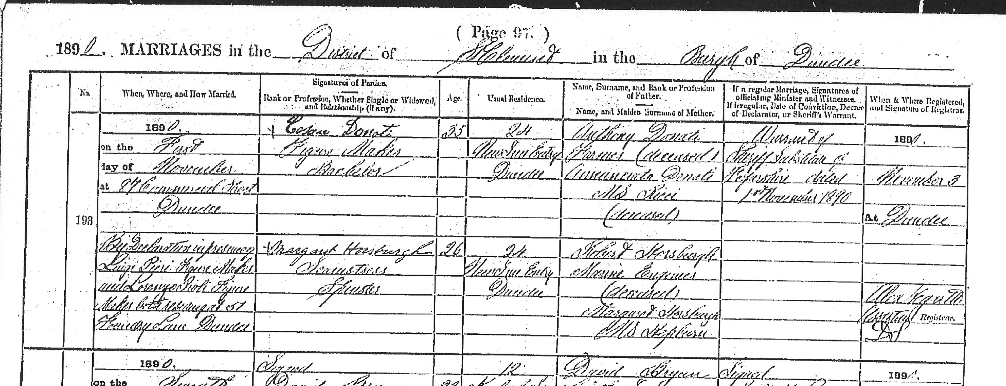 ( Page 97. )
1890. MARRIAGES in the District of in the Burgh of Dundee
No.
When, Where, and How Married.
Signatures of Parties.
Rank or Profession, Whether Single or Widowed, and Relationship (if any).
Age.
Usual Residence.
Name, Surname, and Rank or Profession of Father.
Name, and Maiden Surname of Mother.
If a regular Marriage, Signatures of officiating Minister and Witnesses.
If irregular, Date of Conviction, Decree of Declarator, or Sheriff's Warrant.
When & Where Registered, and Signature of Registrar.
193
1890.
on the First
day of November
at Commercial Street
Dundee
By Declaration in presence
Luigi Figure Maker
and Figure
Maker both residing at 51
Foundry Lane Dundee
Donati
Figure Maker
Bachelor
Margaret Horsburgh
Seamstress
Spinster
35
26
24
New Inn Entry
Dundee
24
New Inn Entry
Dundee
Anthony Donati
Farmer (deceased)
Annunciata Donati
M.S. Ricci
(deceased)
Robert Horsburgh
Marine Engineer
(deceased)
Margaret Horsburgh
M.S. Hepburn
Warrant of
Sheriff Substitute of
Forfarshire dated
1st November 1890
1890.
November 3
At Dundee
Alex
Assistant Registrar.
1890.
on the
Signed
David
12
David Bryan
Signed
1890.